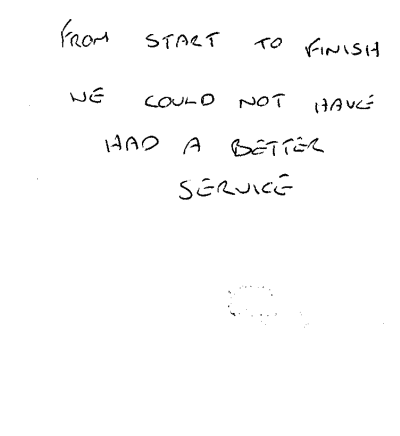 FROM START TO FINISH
WE COULD NOT HAVE
HAD A BETTER
SERVICE